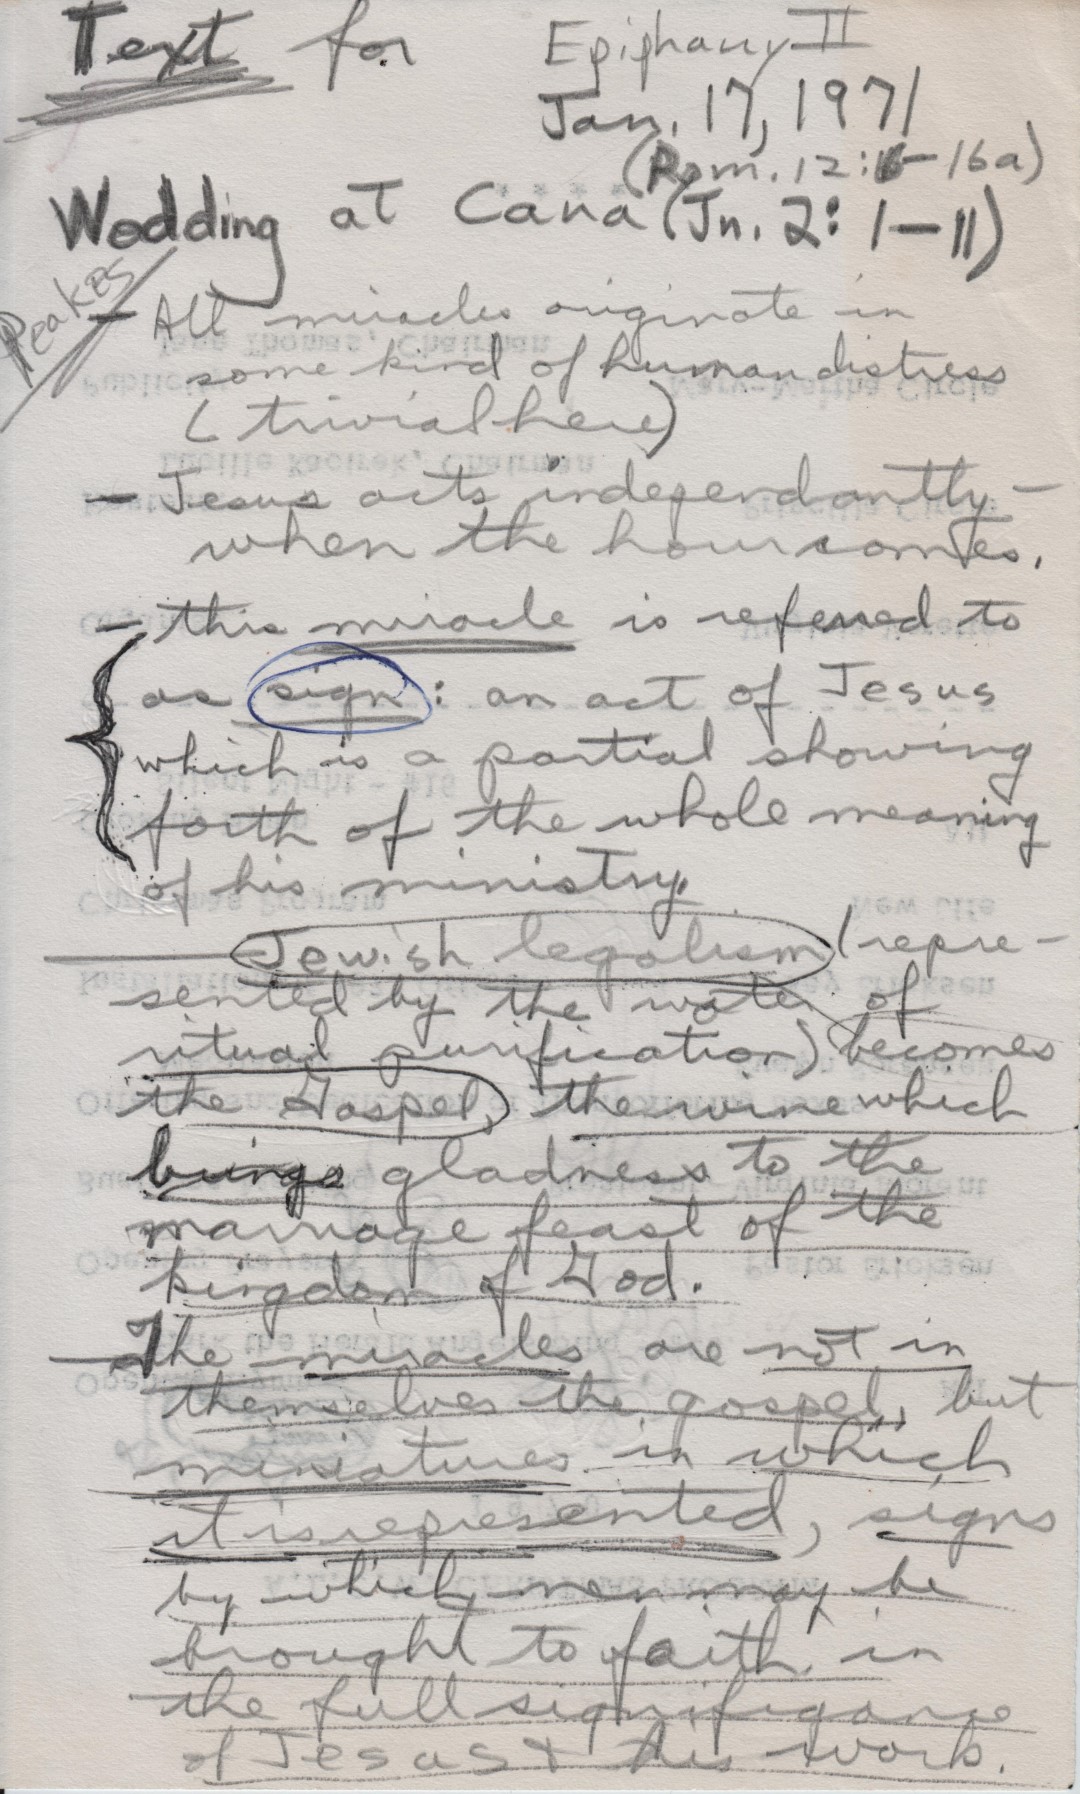 Text for Epiphany II
Jan. 17, 1971
(Rom. 12:6-16a)
Wedding at Cana (Jn. 2:1-11)
Peakes
- All miracles originate in
some kind of human distress
(trivial here)
- Jesus acts independantly -
when the hour comes.
- this miracle is referred to
as sign: an act of Jesus
which is a partial showing
forth of the whole meaning
of his ministry.
- Jewish legalism (repre-
sented by the water of
ritual purification) becomes
the Gospel, the wine which
brings gladness to the
marriage feast of the
kingdom of God.
- The miracles are not in
themselves the gospel, but
miniatures in which
it is represented, signs
by which men may be
brought to faith in
the full significance
of Jesus & his work.